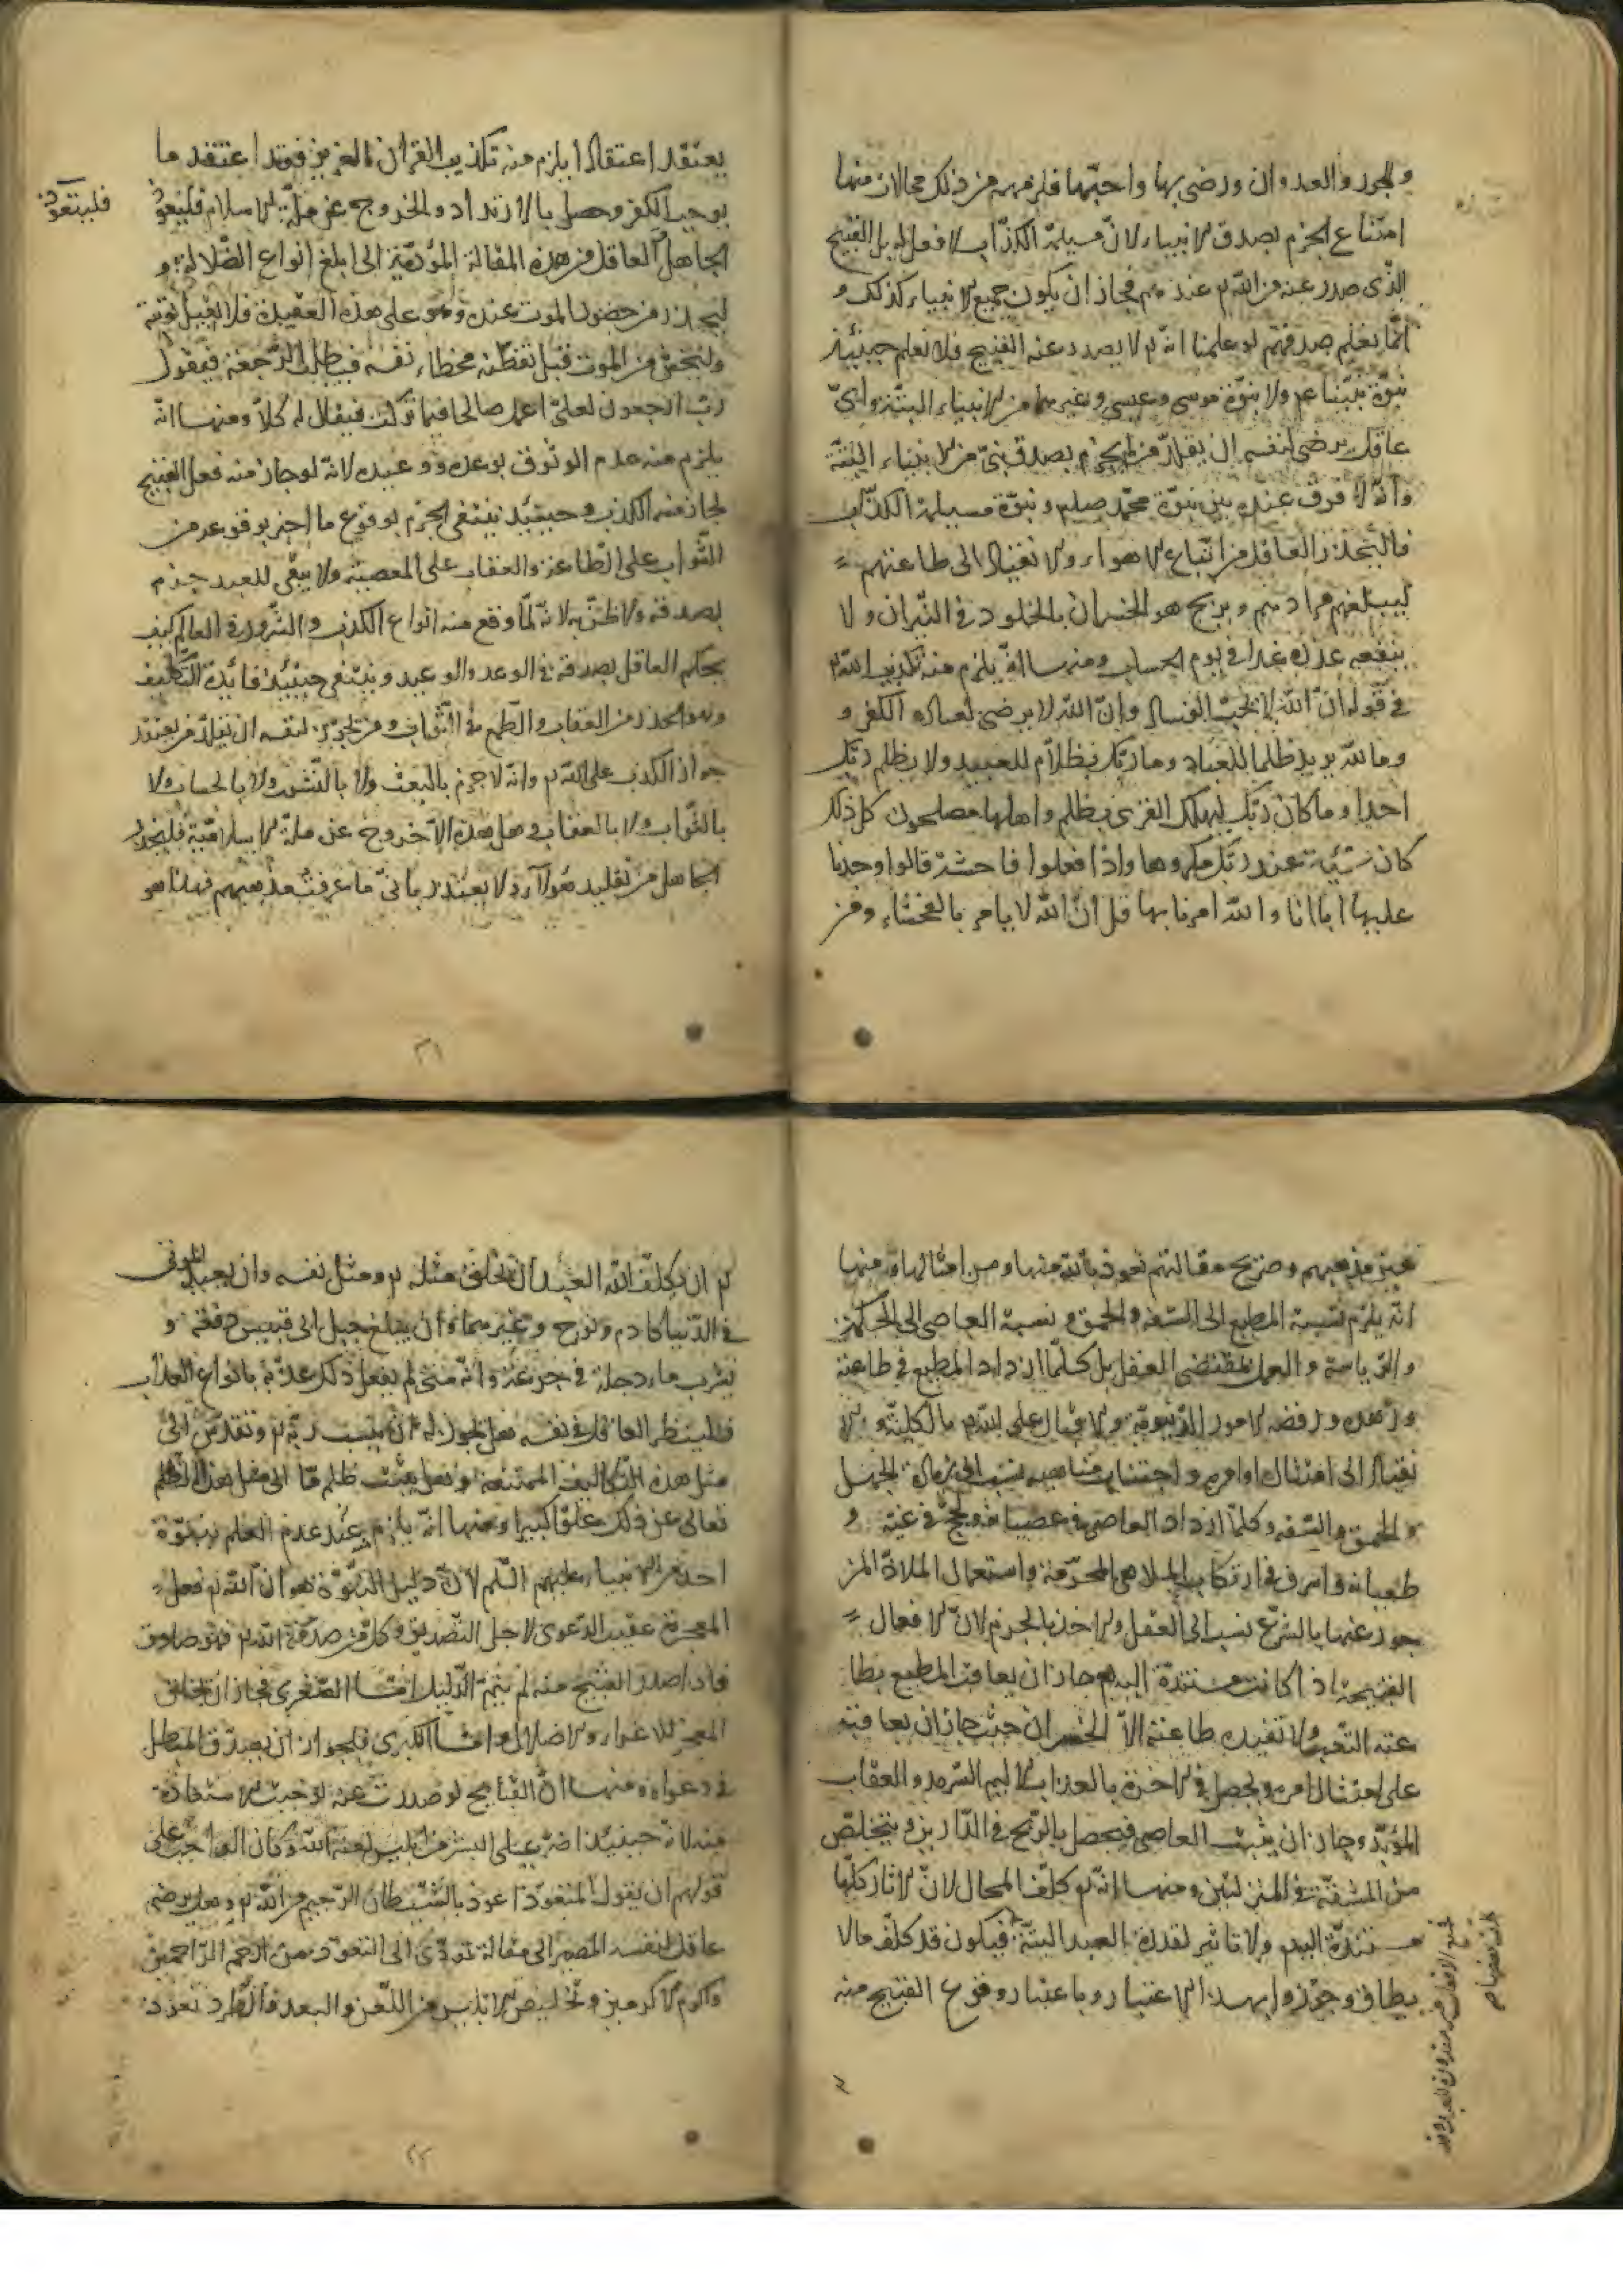 والجور والعدوان ورضى بها واحبّها فلزمهم من ذلك محالات منها
امتناع الجزم بصدق الانبياء لانّ مسيلمة الكذّاب لا فعل له بل القبيح
الّذى صدر عنه من الله تم عندهم فجاز ان يكون جميع الانبياء كذلك و
انّما نعلم صدقهم لو علمنا انّه تم لا يصدر عنه القبيح فلا نعلم حينئذ
نبوّة نبيّنا عم ولا نبوّة موسى وعيسى وغيرهما من الانبياء البتّة واىّ
عاقل يرضى لنفسه ان يقلّد من لم يجزم بصدق نبىّ من الانبياء البتّة
وانّه لا فرق عنده بين نبوّة محمّد صلعم ونبوّة مسيلمة الكذّاب
فاليحذر العاقل من اتّباع الاهواء والانقياد الى طاعتهم
ليبلغهم مرادهم ويربح هو الخسران بالخلود فى النّيران ولا
ينفعه عذره غدا فى يوم الحساب ومنها انّه يلزم منه تكذيب الله تم
فى قوله انّ الله لا يحبّ الفساد وانّ الله لا يرضى لعباده الكفر و
وما الله يريد ظلما للعباد وما ربّك بظلاّم للعبيد ولا يظلم ربّك
احدا وما كان ربّك ليهلك القرى بظلم واهلها مصلحون كل ذلك
كان سيّئه عند ربّك مكروها واذا فعلوا فاحشة قالوا وجدنا
عليها اباانا والله امرنا بها قل انّ الله لا يامر بالفحشاء ومن
يعتقد اعتقادا يلزم منه تكذيب القران العزيز فقد اعتقد ما
يوجب الكفر وحصل بالارتداد والخروج عن ملّة الاسلام فليتعوّذ
فليتعوّذ
الجاهل العاقل من هذه المقالة المؤدّية الى ابلغ انواع الضّلالة و
ليحذر من حضور الموت عنده وهو على هذه العقيدة فلا تقبل توبته
وليخش من الموت قبل تفطّنه بخطاء نفسه فيطلب الرّجعة فيقول
ربّ ارجعون لعلّى اعمل صالحا فيما تركت فيقال له كلاّ ومنها انّه
يلزم منه عدم الوثوق بوعده ووعيده لانّه لو جاز منه فعل القبيح
لجاز منه الكذب وحينئذ ينتفى الجزم بوقوع ما اخبر بوقوعه من
الثّواب على الطّاعة والعقاب على المعصية ولا يبقى للعبد جزم
بصدقه ولا ظنّ به لانّه لمّا وقع منه انواع الكذب والشّرور فى العالم كيف
يحكم العاقل بصدقه فى الوعد والوعيد وينتفى حينئذ فائدة التّكليف
وهو الحذر من العقاب والطّمع فى الثّواب ومن يجوّز لنفسه ان يقلّد من يعتقد
جواز الكذب على الله تم وانّه لا جزم بالبعث ولا بالنّشور ولا بالحساب ولا
بالثّواب ولا بالعقاب وهل هذه الاّ خروج عن ملّة الاسلاميّة فليحذر
الجاهل من تقليد هؤلاء ولا يعتذر بانّى ما عرفت مذهبهم فهذا هو
٢١
عين مذهبهم وصريح مقالتهم نعوذ بالله منها ومن امثالها ومنها
انّه يلزم نسبة المطيع الى السّفه والحمق ونسبة العاصى الى الحكمة
والرّياسة والعمل بمقتضى العقل بل كلّما ازداد المطيع فى طاعته
وزهده ورفضه الامور الدّنيويّة والاقبال على الله تم بالكليّة والا
نقياد الى امتثال اوامره واجتناب مناهيه نسب الى زيادة الجهل
والحمق والسّفه وكلّما ازداد العاصى فى عصيانه ولجّ فى غيّه و
طغيانه واسرف فى ارتكاب الملاهى المحرّمة واستعمال الملاذّ المز
جور عنها بالشّرع نسب الى العقل والاخذ بالجزم لانّ الافعال
القبيحة اذا كانت مستندة اليه تم جاز ان يعاقب المطيع بطا
عته التّعب ولا تفيده طاعته الاّ الخسران حيث جاز ان يعاقبه
على امتثال امره ويحصل فى الاخرة بالعذاب الاليم السّرمد والعقاب
المؤبّد وجاز ان يثيب العاصى فيحصل بالرّبح فى الدّارين ويتخلّص
من المشقّة فى المنزلتين ومنها انّه تم كلّف المحال لانّ الاثار كلّها
مستندة اليه تم ولا تاثير لقدرة العبد البتّة فيكون قد كلّف ما لا
يطاق وجوّزوا بهذا الاعتبار وباعتبار وقوع القبيح منه
تم ان يكلّف الله العبد ان يخلق مثله تم ومثل نفسه وان يعيد الموتى
فى الدّنيا كادم ونوح وغيرهما وان يبلع جبل ابى قبيس دفعة و
يشرب ماء دجلة فى جرعة وانّه متى لم يفعل ذلك عذّبه بانواع العذاب
فلينظر العاقل فى نفسه هل يجوز له ان ينسب ربّه تم وتقدّس الى
مثل هذه التّكاليف الممتنعة وهل ينسب ظلم منّا الى مثل هذا الظّلم
تعالى عن ذلك علوّا كبيرا ومنها انّه يلزم عنه عدم العلم بنبوّة
احد من الانبياء عليهم السّلم لانّ دليل النّبوّة هو انّ الله تم فعل
المعجزة عقيب الدّعوى لاجل التّصديق وكلّ من صدّقه الله تم فهو صادق
فاذا صدر القبيح منه لم يتمّ الدّليل امّا الصّغرى فجاز ان يخلق
المعجز للاغواء والاضلال وامّا الكبرى فلجواز ان يصدّق المبطل
فى دعواه ومنها انّ القبايح لو صدرت عنه لوجبت الاستعاذة
منه لانّه حينئذ اضرّ على البشر من ابليس لعنه الله وكان الواجب على
قولهم ان يقول المتعوّذ اعوذ بالشّيطان الرّجيم من الله تم وهل يرضى
عاقل لنفسه المصير الى مقالة تؤدّى الى التعوّذ من ارحم الرّاحمين
واكرم الاكرمين وتخليص ابليس من اللّعن والبعد والطّرد نعوذ
٢٢